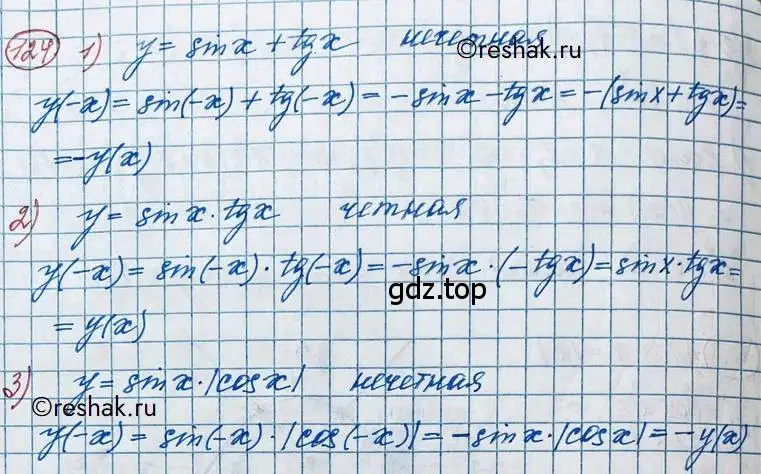 124 1) y = sinx + tgx нечетная
©reshak.ru
y(-x) = sin(-x) + tg(-x) = -sinx - tgx = -(sinx + tgx) =
= -y(x)
2) y = sinx · tgx четная
y(-x) = sin(-x) · tg(-x) = -sinx · (-tgx) = sinx · tgx =
gdz.top
= y(x)
3) y = sinx · |cosx| нечетная
©reshak.ru
y(-x) = sin(-x) · |cos(-x)| = -sinx · |cosx| = -y(x)